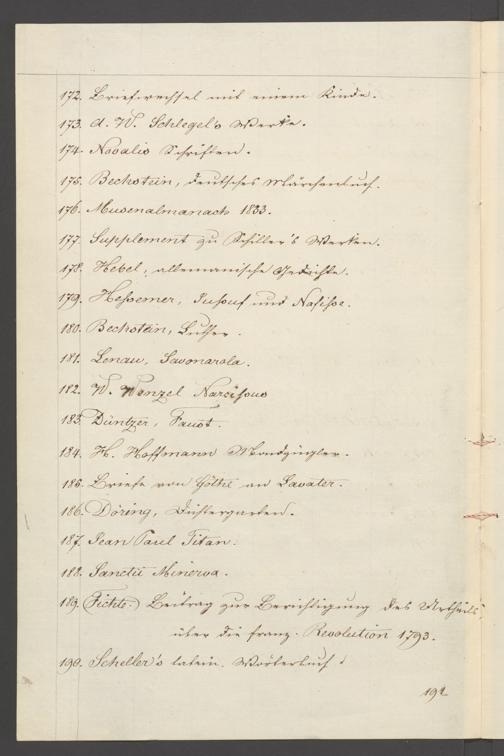 172. Briefwechsel mit einem Kinde.
173. A. W. Schlegel's Werke.
174. Novalis Schriften.
175. Bechstein, deutsches Märchenbuch.
176. Musenalmanach 1833.
177. Supplement zu Schiller's Werken.
178. Hebel, allemanische Gedichte.
179. Hessemer, Jussuf und Nafisse.
180. Bechstein, Luther.
181. Lenau, Savonarola.
182. W. Wenzel Narcissus
183. Düntzer, Faust.
184. H. Hoffmann Mondzügler.
185. Briefe von Göthe an Lavater.
186. Döring,
187. Jean Paul Titan.
188. Sanctii Minerva.
189. (Fichte.) Beitrag zur Berichtigung des Urtheils
über die franz. Revolution 1793.
190. Scheller's latein. Wörterbuch
192